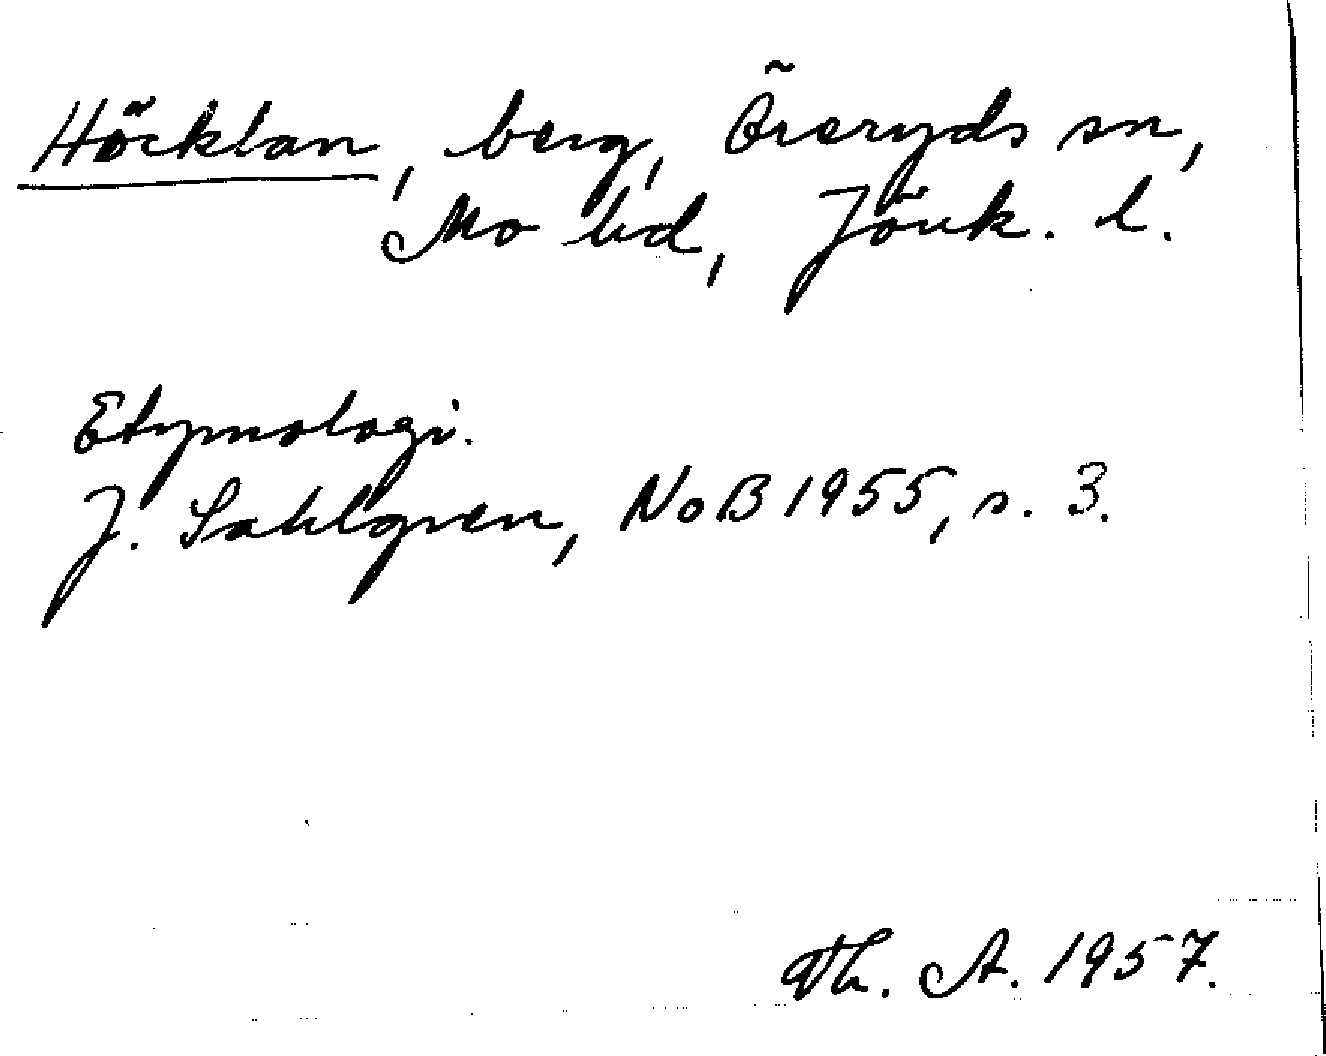 Höcklan, berg, Öreryds sn,
Mo hd, Jönk. l.
Etymologi.
J. Sahlgren, NoB 1955, s. 3.
Th. A. 1957.